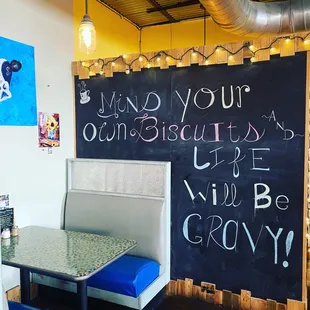 Mind Your
Own Biscuits ~AND~
Life
Will Be
GRAVY!